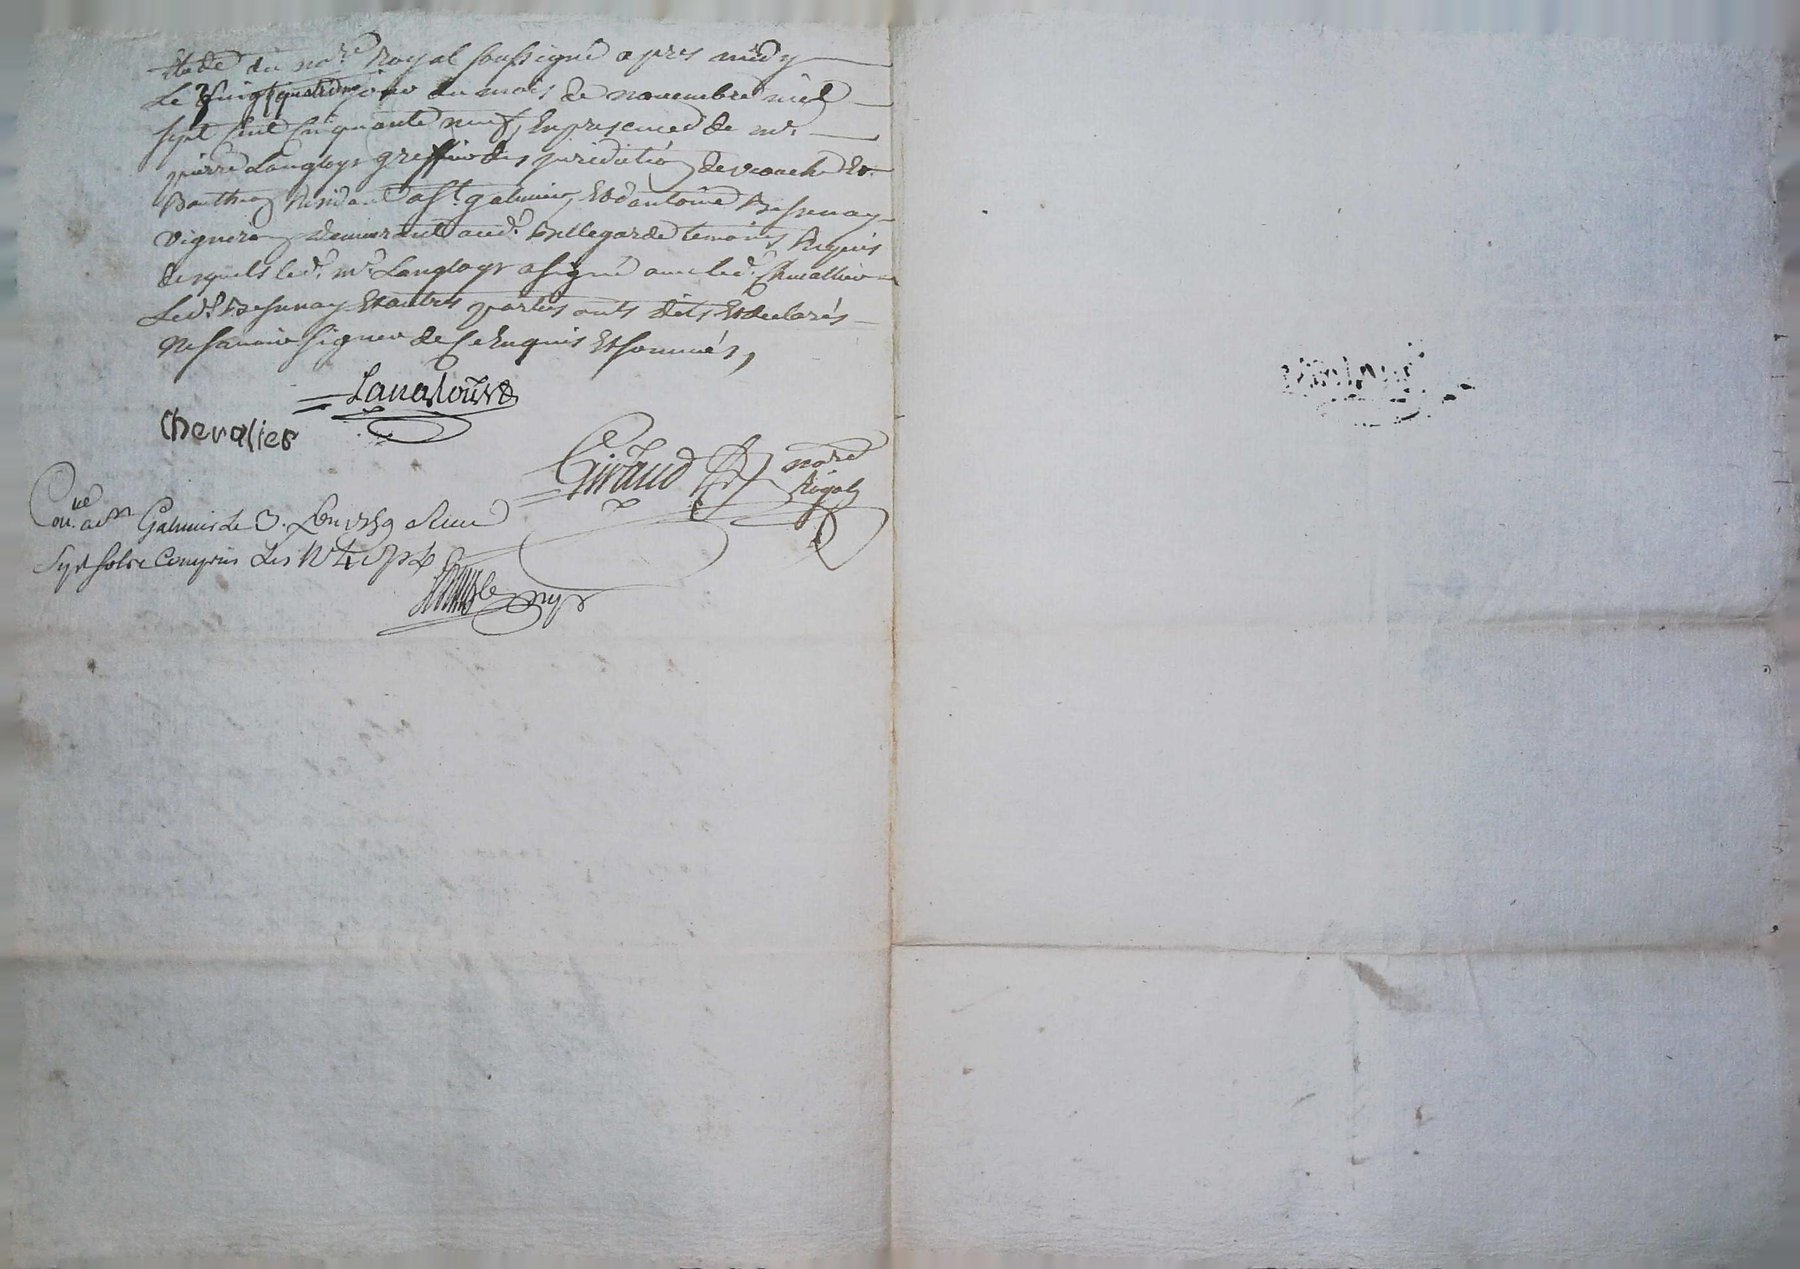 étude du no.re Royal soussigné apres midy
Le vingt quatrieme jour du mois de novembre mil
sept cent cinquante neuf, En presence de mr.
pierre Langloys greffier des juridictions de veauche Et
Residant a st. galmier, Et d'antoine Bessenay
Vigneron demeurant aud.t Bellegarde temoins Requis
desquels led.t mr. Langloys a signé avec led.t Chevallier
Led.t Bessenay Et autres parties onts dits Et declarés
Ne savoir signer de ce Enquis Et sommés,
Langloys
Chevalier
Giraud no.re Royal
Con.lé a st Galmier Le 3. 1759 Reçu
sols compris Les